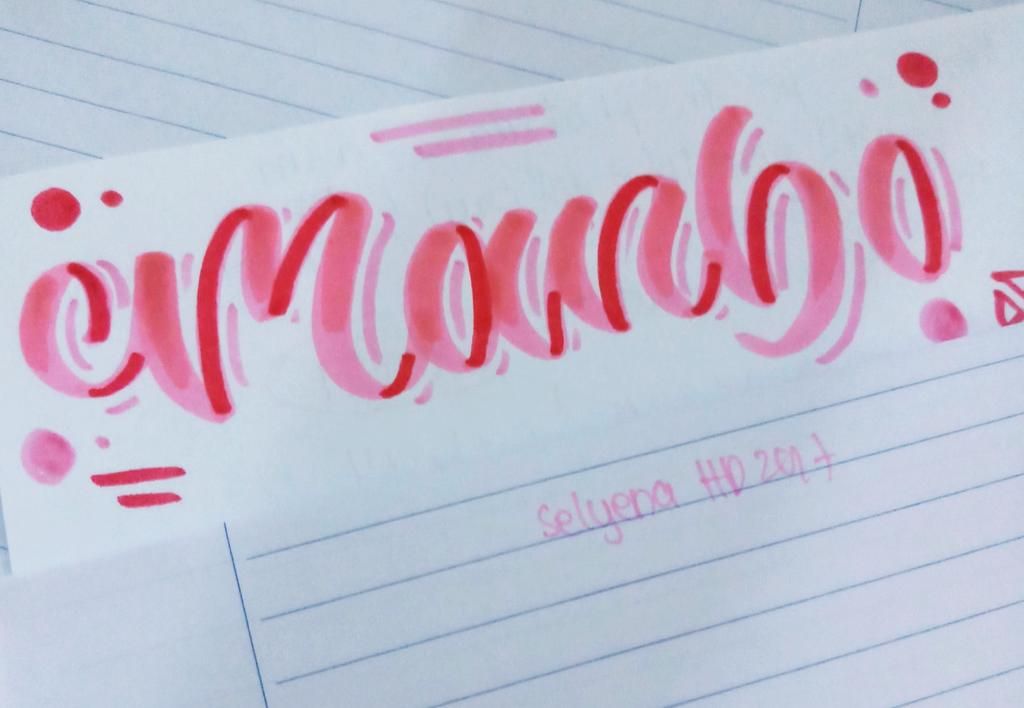 Manbo
selyena HD 2017